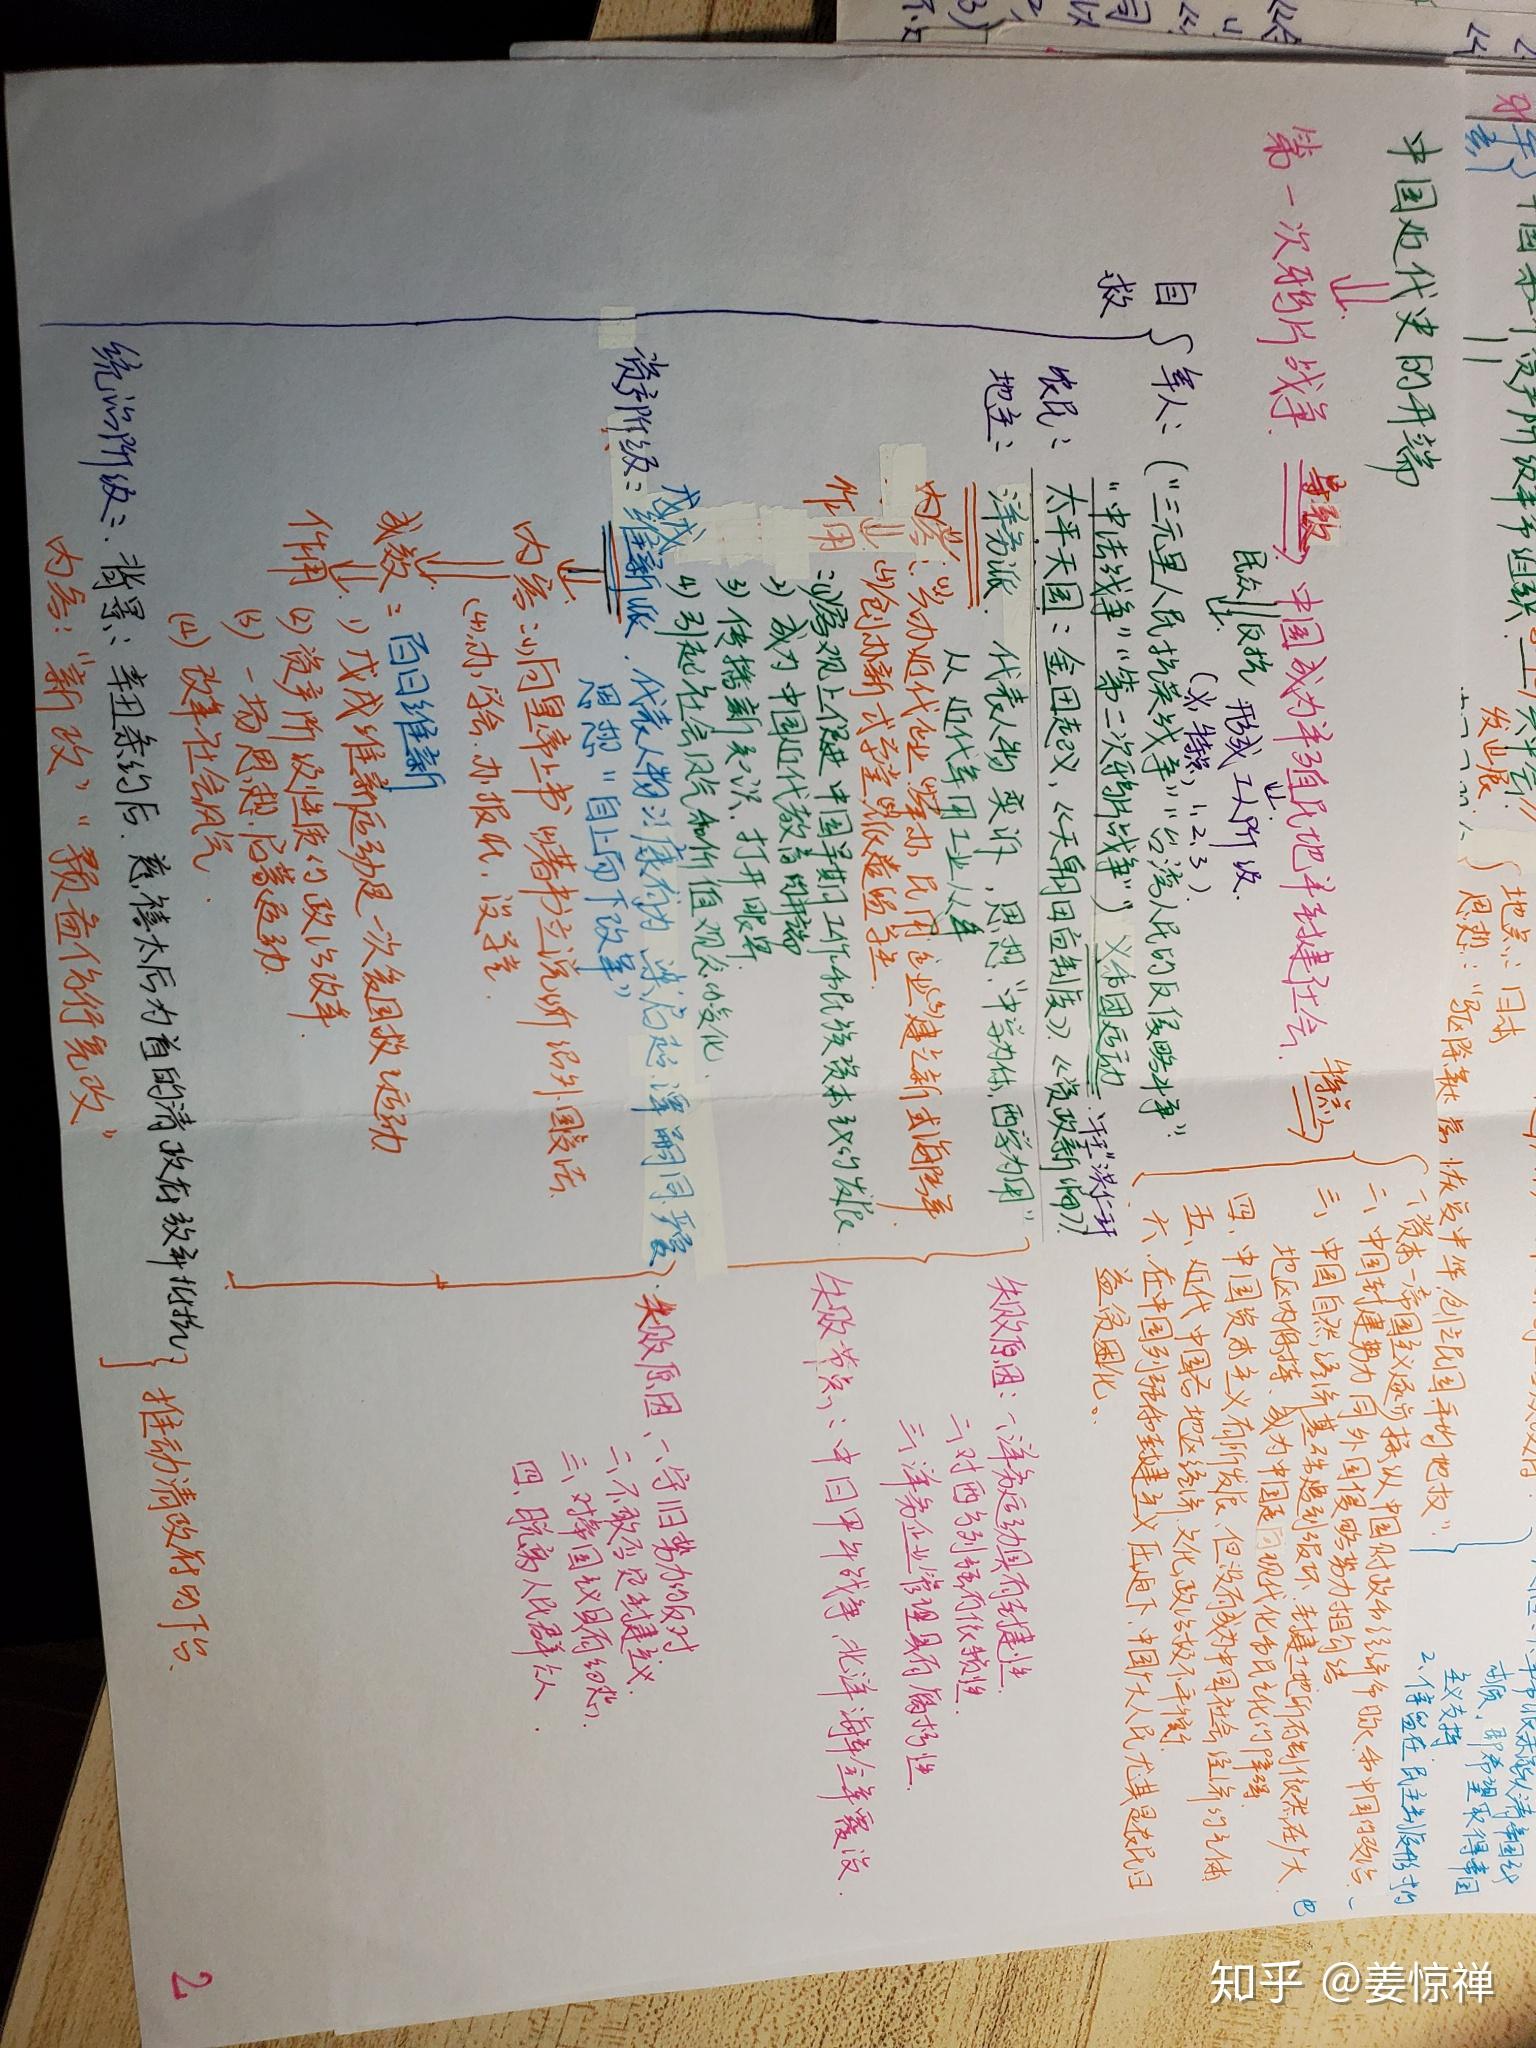 中国近代史的开端
第一次鸦片战争 导致 中国成为半殖民地半封建社会
特点
一、资本—帝国主义逐步操纵中国财政和经济命脉和中国的政治
二、中国封建势力同外国侵略势力相勾结
三、中国自然经济基础遭到破坏，封建土地所有制依然在广大
地区内保持，成为中国走向现代化和民主化的障碍
四、中国资本主义有所发展，但没有成为中国社会经济的主体
五、近代中国各地区经济、文化、政治极不平衡
六、在中国列强和封建主义压迫下，中国广大人民尤其是农民日
益贫困化。
民众反抗 形成工人阶级
(义,特点,1,2,3)
自救
军人：("三元里人民抗英战争""台湾人民的反侵略斗争"
"中法战争""第二次鸦片战争") 义和团运动
农民：太平天国：金田起义，《天朝田亩制度》《资政新编》
洪仁玕
地主：洋务派 代表人物 奕䜣，思想"中学为体，西学为用"
从近代军用工业入手
内容：(1)兴办近代企业
(3)创办新式学堂，派遣留学生
作用：(1)客观上促进中国早期工业和民族资本主义的发展
2)成为中国近代教育的开端
3)传播新知识，打开眼界
4)引起社会风气和价值观念的变化
失败原因：一、洋务运动具有封建性
二、对西方列强有依赖性
三、洋务企业管理具有腐朽性
失败节点：中日甲午战争，北洋海军全军覆没
资产阶级：戊戌维新派，代表人物：康有为 梁启超 谭嗣同 严复
思想"自上而下改革"
内容：(1)向皇帝上书 (2)著书立说 (3)介绍外国变法
(4)办学会、办报纸、设学堂
成效：百日维新
作用 1)戊戌维新运动是一次爱国救亡运动
(2)资产阶级性质的政治改革
(3)一场思想启蒙运动
(4)改革社会风气
失败原因、一、守旧势力的反对
二、不敢否定封建主义
三、对帝国主义具有幻想
四、脱离人民群众
统治阶级：背景：辛丑条约后，慈禧太后为首的清政府
内容："新政"，"预备仿行宪政"
推动清政府的下台
2
地点：日本
思想："驱除鞑虏，恢复中华，创立民国，平均地权"
发展
知乎 @姜惊禅